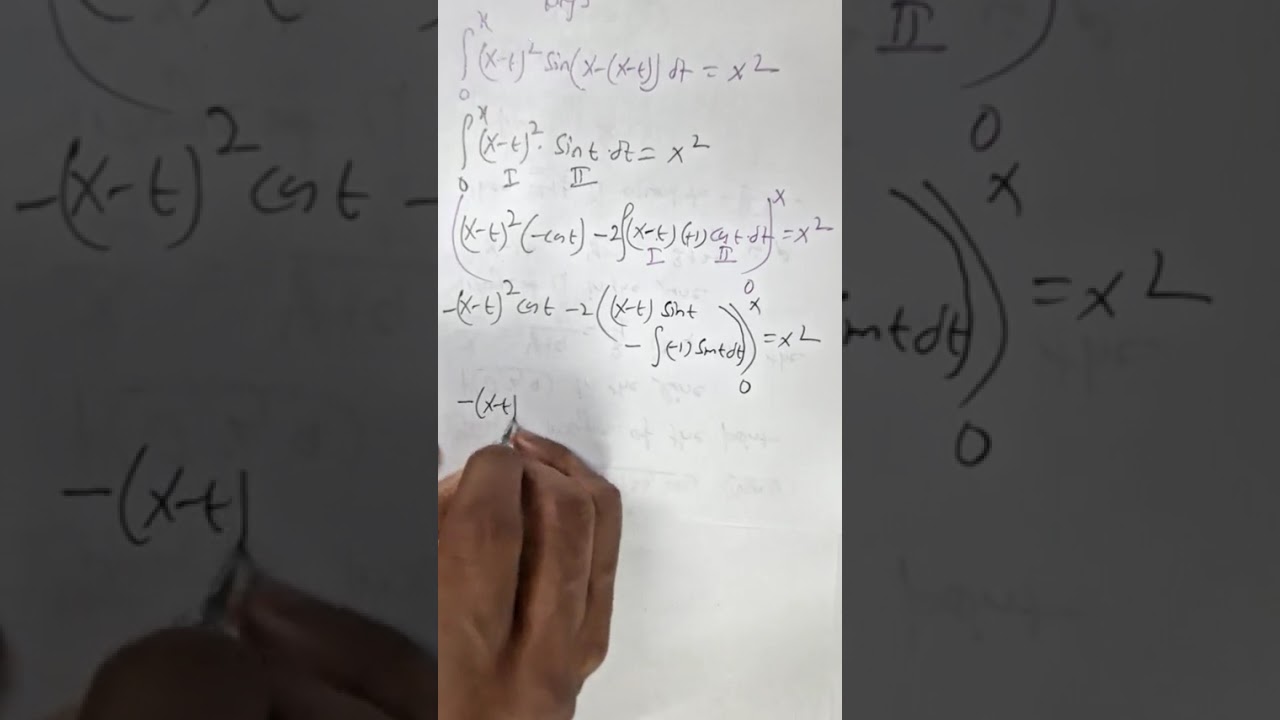 ∫₀ˣ (x-t)² Sin(x-(x-t)) dt = x²
∫₀ˣ (x-t)² · Sint·dt = x²
I II
((x-t)² (-cost) - 2∫(x-t)(+1) cost·dt)₀ˣ = x²
I II
-(x-t)² cost - 2((x-t) Sint
- ∫(-1) Sintdt))₀ˣ = x²
-(x-t)